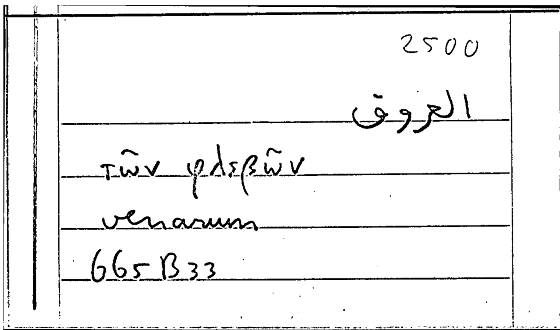 2500
العروق
τῶν φλεβῶν
venarum
665B33